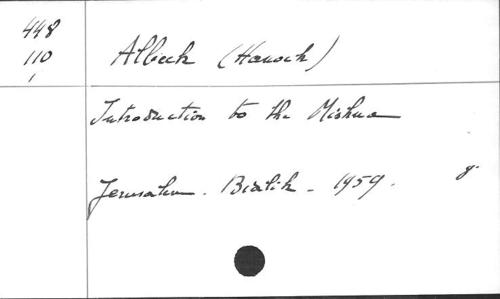 448
110
1
Albeck (Hanoch)
Introduction to the Mishna
Jerusalem - Bialik - 1959. 8°